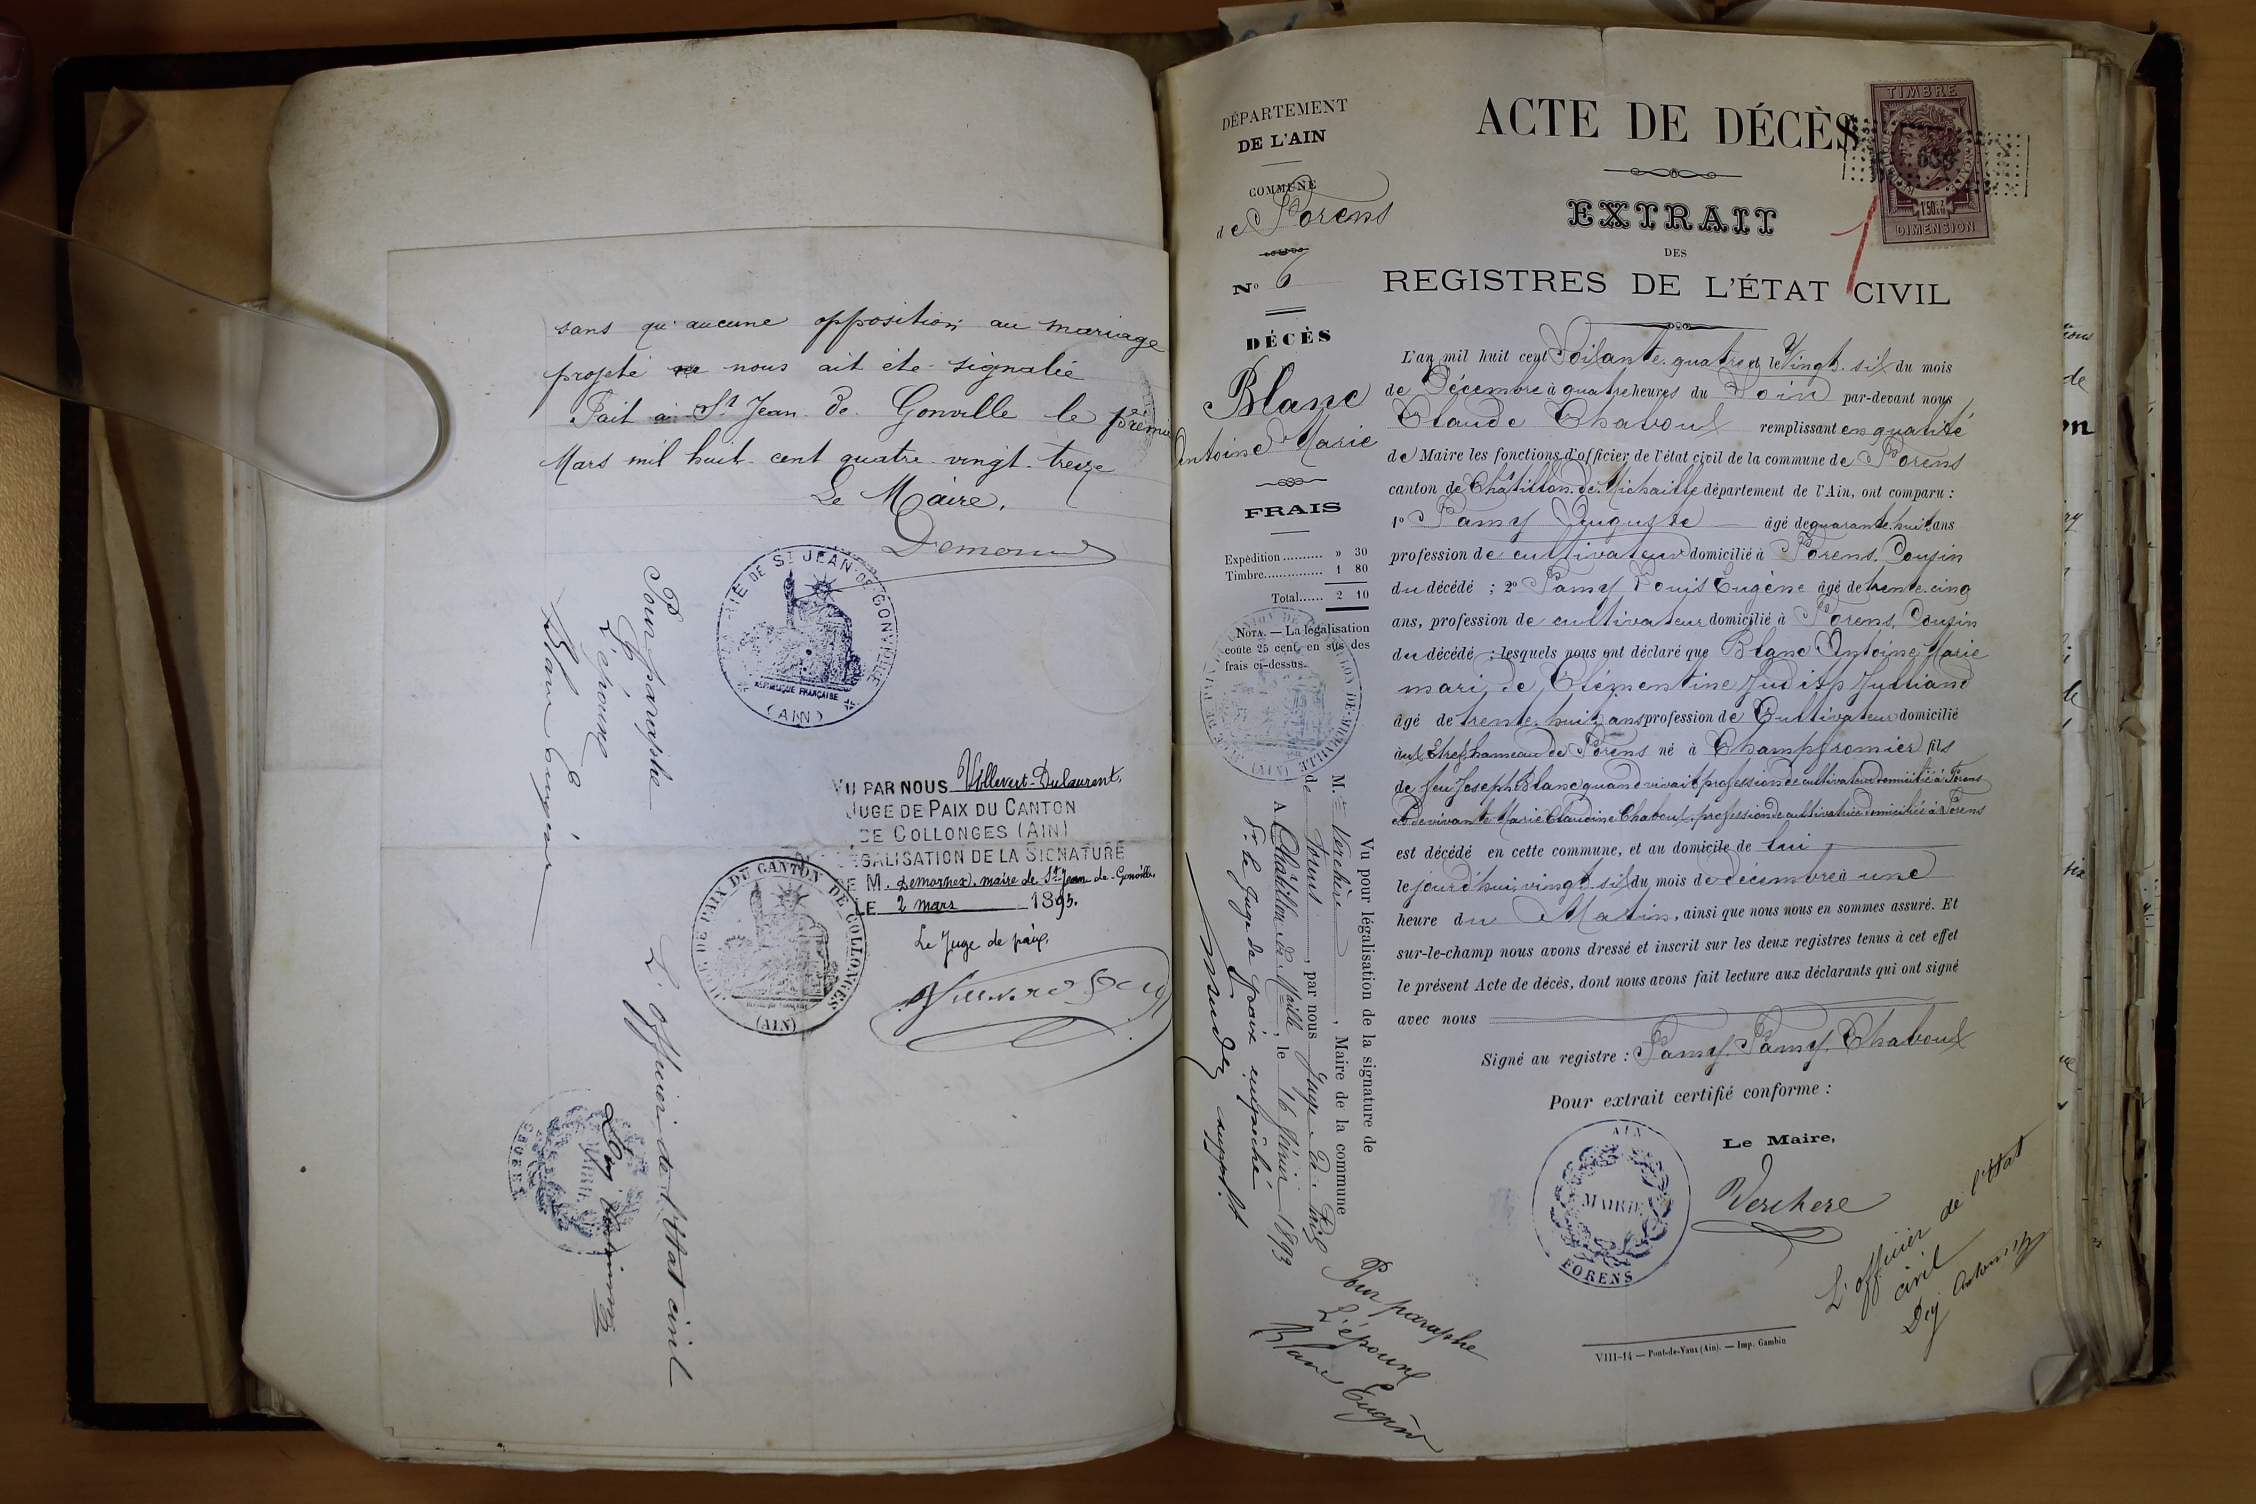 sans qu'aucune opposition au mariage
projeté nous ait été signalée
Fait à St Jean de Gonville le premier
Mars mil huit cent quatre vingt treize
Le Maire,
MAIRIE DE ST JEAN DE GONVILLE
RÉPUBLIQUE FRANÇAISE
(AIN)
Pour paraphe
L'épouse
Blanc Eugénie
VU PAR NOUS Villevert-Dulaurent,
JUGE DE PAIX DU CANTON
DE COLLONGES (AIN)
LÉGALISATION DE LA SIGNATURE
DE M. Demornex, maire de St Jean de Gonville,
LE 2 mars 1893.
Le Juge de paix,
JUGE DE PAIX DU CANTON DE COLLONGES
(AIN)
L'officier de l'Etat civil
MAIRIE
DÉPARTEMENT
DE L'AIN
COMMUNE
de Forens
No 6
DÉCÈS
Blanc
Antoine Marie
FRAIS
Expédition........... » 30
Timbre............... 1 80
Total...... 2 10
NOTA. — La légalisation
coûte 25 cent. en sus des
frais ci-dessus.
Vu pour légalisation de la signature de
M. Verchère, Maire de la commune
de Forens, par nous Juge de Paix
A Châtillon de Maille, le 16 février 1893
Pr le Juge de paix empêché
suppt
ACTE DE DÉCÈS
TIMBRE
1f50c
DIMENSION
EXTRAIT
DES
REGISTRES DE L'ÉTAT CIVIL
L'an mil huit cent Soixante quatre et le Vingt-six du mois
de Décembre à quatre heures du Soir par-devant nous
Claude Chavoux remplissant en qualité
de Maire les fonctions d'officier de l'état civil de la commune de Forens
canton de Châtillon de Michaille département de l'Ain, ont comparu :
1o Famy Auguste âgé de quarante huit ans
profession de cultivateur domicilié à Forens. Cousin
du décédé ; 2o Famy Louis Eugène âgé de trente cinq
ans, profession de cultivateur domicilié à Forens. Cousin
du décédé ; lesquels nous ont déclaré que Blanc Antoine Marie
mari de Clémentine Judith Julliand
âgé de trente huit ans profession de Cultivateur domicilié
aux Etres hameau de Forens né à Champfromier fils
de feu Joseph Blanc quand vivait profession de cultivateur domicilié à Forens
et de vivante Marie Claudine Chavoux, profession de cultivatrice domiciliée à Forens
est décédé en cette commune, et au domicile de lui
le jourd'hui vingt-six du mois de décembre à une
heure du Matin, ainsi que nous nous en sommes assuré. Et
sur-le-champ nous avons dressé et inscrit sur les deux registres tenus à cet effet
le présent Acte de décès, dont nous avons fait lecture aux déclarants qui ont signé
avec nous
Signé au registre : Famy. Famy. Chavoux
Pour extrait certifié conforme :
Le Maire,
Verchere
AIN
MAIRIE
FORENS
L'officier de l'Etat
civil
Pour paraphe
L'épouse
Blanc Eugénie
VIII-14 — Pont-de-Vaux (Ain). — Imp. Gambin